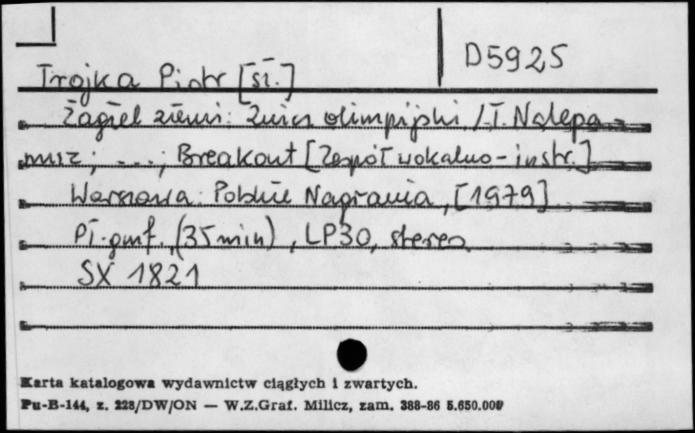 D5925
Trojka Piotr [sł.]
Żagiel ziemi: Znicz olimpijski / T. Nalepa -
muz; ...; Breakout [Zespół wokalno-instr.]
Warszawa: Polskie Nagrania, [1979]
Pł. gmf. (35 min), LP30, stereo
SX 1821
Karta katalogowa wydawnictw ciągłych i zwartych.
Pu-B-144, z. 228/DW/ON — W.Z.Graf. Milicz, zam. 388-86 5.650.000